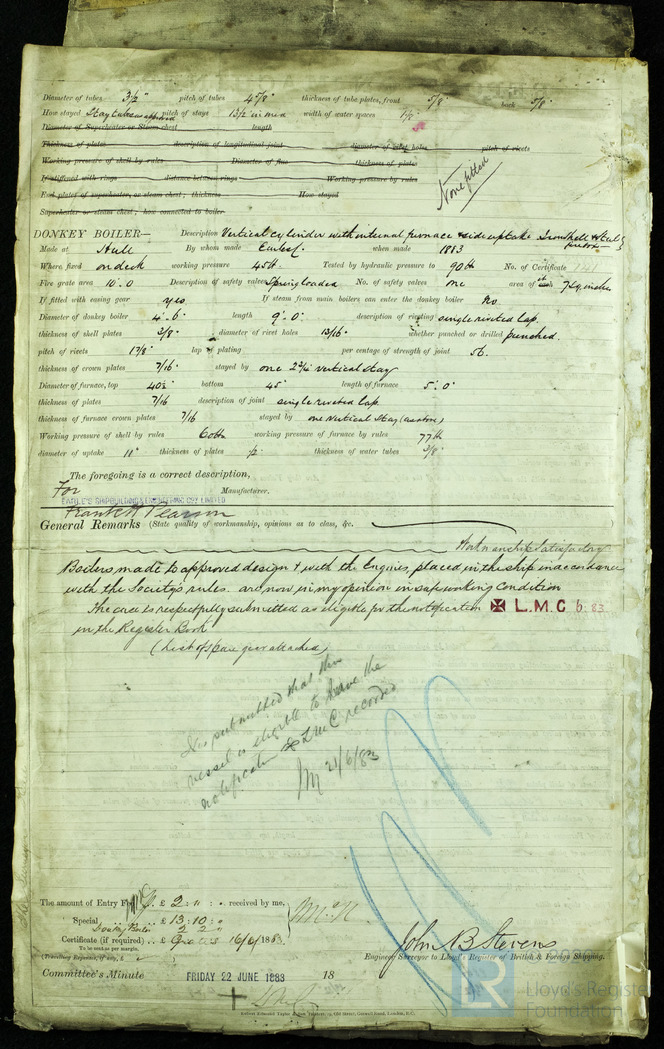 Diameter of tubes 3½" pitch of tubes 4⅝" thickness of tube plates, front 5/8" back 5/8"
How stayed Stay tubes as approved pitch of stays 13½ in mean width of water spaces 1½"
Diameter of Superheater or Steam chest length
Thickness of plates description of longitudinal joint diameter of rivet holes pitch of rivets
Working pressure of shell by rules Diameter of flue thickness of plates
If stiffened with rings distance between rings Working pressure by rules
End plates of superheater, or steam chest; thickness How stayed
Superheater or steam chest; how connected to boiler
None fitted
DONKEY BOILER— Description Vertical cylinder with internal furnace & side uptake Iron shell & Steel
Made at Hull By whom made Earle & Co when made 1883
Where fixed on deck working pressure 45 lb Tested by hydraulic pressure to 90 lb No. of Certificate
Fire grate area 10.0 Description of safety valves Spring loaded No. of safety valves one area of 7 sq. inches
If fitted with easing gear yes If steam from main boilers can enter the donkey boiler No.
Diameter of donkey boiler 4'. 6" length 9'. 0" description of riveting single riveted lap.
thickness of shell plates 3/8" diameter of rivet holes 13/16" whether punched or drilled punched.
pitch of rivets 1⅞" lap of plating per centage of strength of joint 56.
thickness of crown plates 7/16" stayed by one vertical stay
Diameter of furnace, top 40½" bottom 45" length of furnace 5'. 0"
thickness of plates 7/16 description of joint single riveted lap
thickness of furnace crown plates 7/16 stayed by one vertical stay
Working pressure of shell by rules 60 lbs working pressure of furnace by rules 77 lb
diameter of uptake 11" thickness of plates ½" thickness of water tubes 3/8"
The foregoing is a correct description,
For Manufacturer.
EARLE'S SHIPBUILDING & ENGINEERING COY LIMITED
Frank H Pearson
General Remarks (State quality of workmanship, opinions as to class, &c. )
Workmanship Satisfactory
Boilers made to approved design & with the Engines, placed in the ship in accordance
with the Society's rules. are now in my opinion in safe working condition
The case is respectfully submitted as eligible for the notification ✠ L.M.C 6.83
in the Register Book
(List of spare gear attached)
It is submitted that this
vessel is eligible to have the
notification ✠ LMC recorded
21/6/83
The amount of Entry Fee .. £ 2 : " : " received by me,
Special .. £ 13 : 10 : "
Donkey Boiler 2 2 "
Certificate (if required) .. £ Gratis 16/6/1883.
To be sent as per margin.
(Travelling Expenses, if any, £ )
John B Stevens
Engineer Surveyor to Lloyd's Register of British & Foreign Shipping.
Committee's Minute FRIDAY 22 JUNE 1883 18
LR Lloyd's Register
Foundation